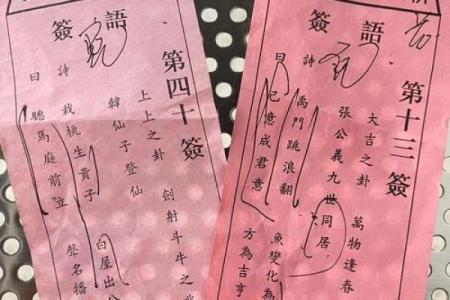 語簽
第十三簽
大吉之卦 萬物逢春
張公義九世同居
詩曰
禹門跳浪翻 魚變化為
己意成君意 方為吉亨
語簽
第四十簽
上上之卦 劍射斗牛之
韓仙子登仙
詩曰
栽桃生貴子 白屋出公
聰馬庭前立 聲名播